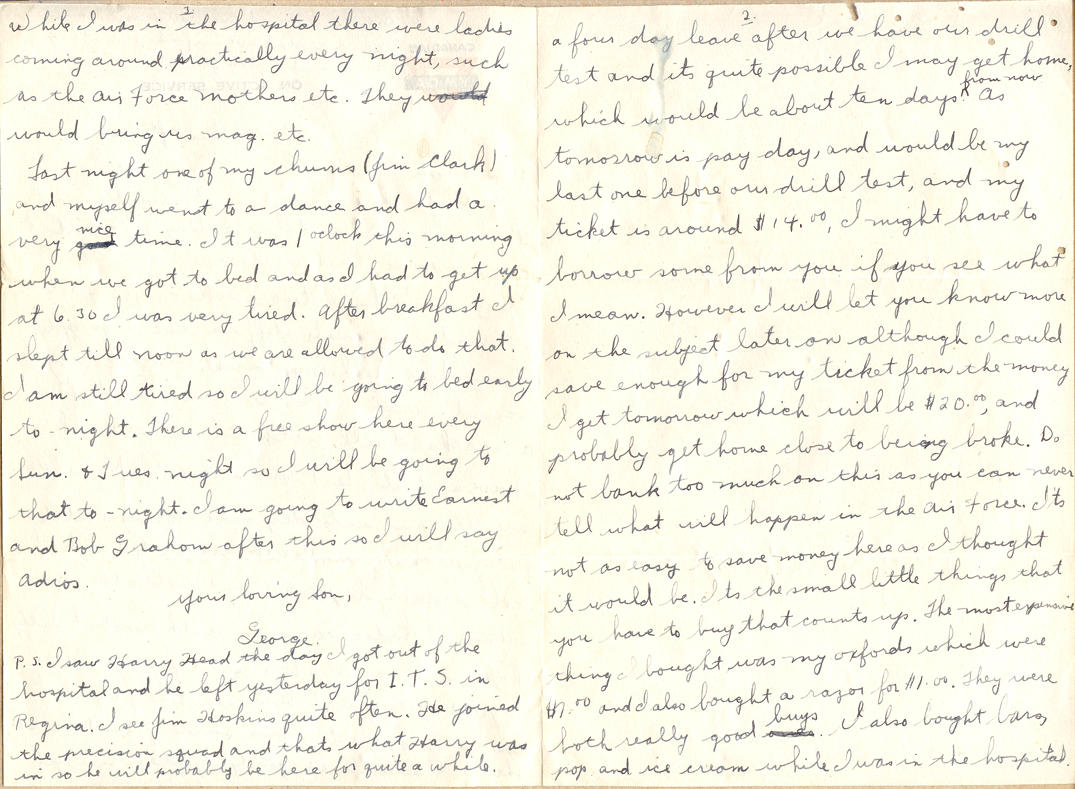 3
While I was in the hospital there were ladies
coming around practically every night, such
as the Air Force Mothers etc. They would
would bring us mag. etc.
Last night one of my chums (Jim Clark)
and myself went to a dance and had a
very good nice time. It was 1 oclock this morning
when we got to bed and as I had to get up
at 6.30 I was very tired. After breakfast I
slept till noon as we are allowed to do that.
I am still tired so I will be going to bed early
to-night. There is a free show here every
Sun. & Tues. night so I will be going to
that to-night. I am going to write Earnest
and Bob Graham after this so I will say
adios.
Your loving Son,
George.
P.S. I saw Harry Head the day I got out of the
hospital and he left yesterday for I.T.S. in
Regina. I see Jim Hoskins quite often. He joined
the precision squad and thats what Harry was
in so he will probably be here for quite a while.
2.
a four day leave after we have our drill
test and its quite possible I may get home,
which would be about ten days from now. As
tomorrow is pay day, and would be my
last one before our drill test, and my
ticket is around $14.00, I might have to
borrow some from you if you see what
I mean. However I will let you know more
on the subject later on although I could
save enough for my ticket from the money
I get tomorrow which will be $20.00, and
probably get home close to being broke. Do
not bank too much on this as you can never
tell what will happen in the Air Force. Its
not as easy to save money here as I thought
it would be. Its the small little things that
you have to buy that counts up. The most expensive
thing I bought was my oxfords which were
$7.00 and I also bought a razor for $1.00. They were
both really good buys. I also bought bars,
pop and ice cream while I was in the hospital.